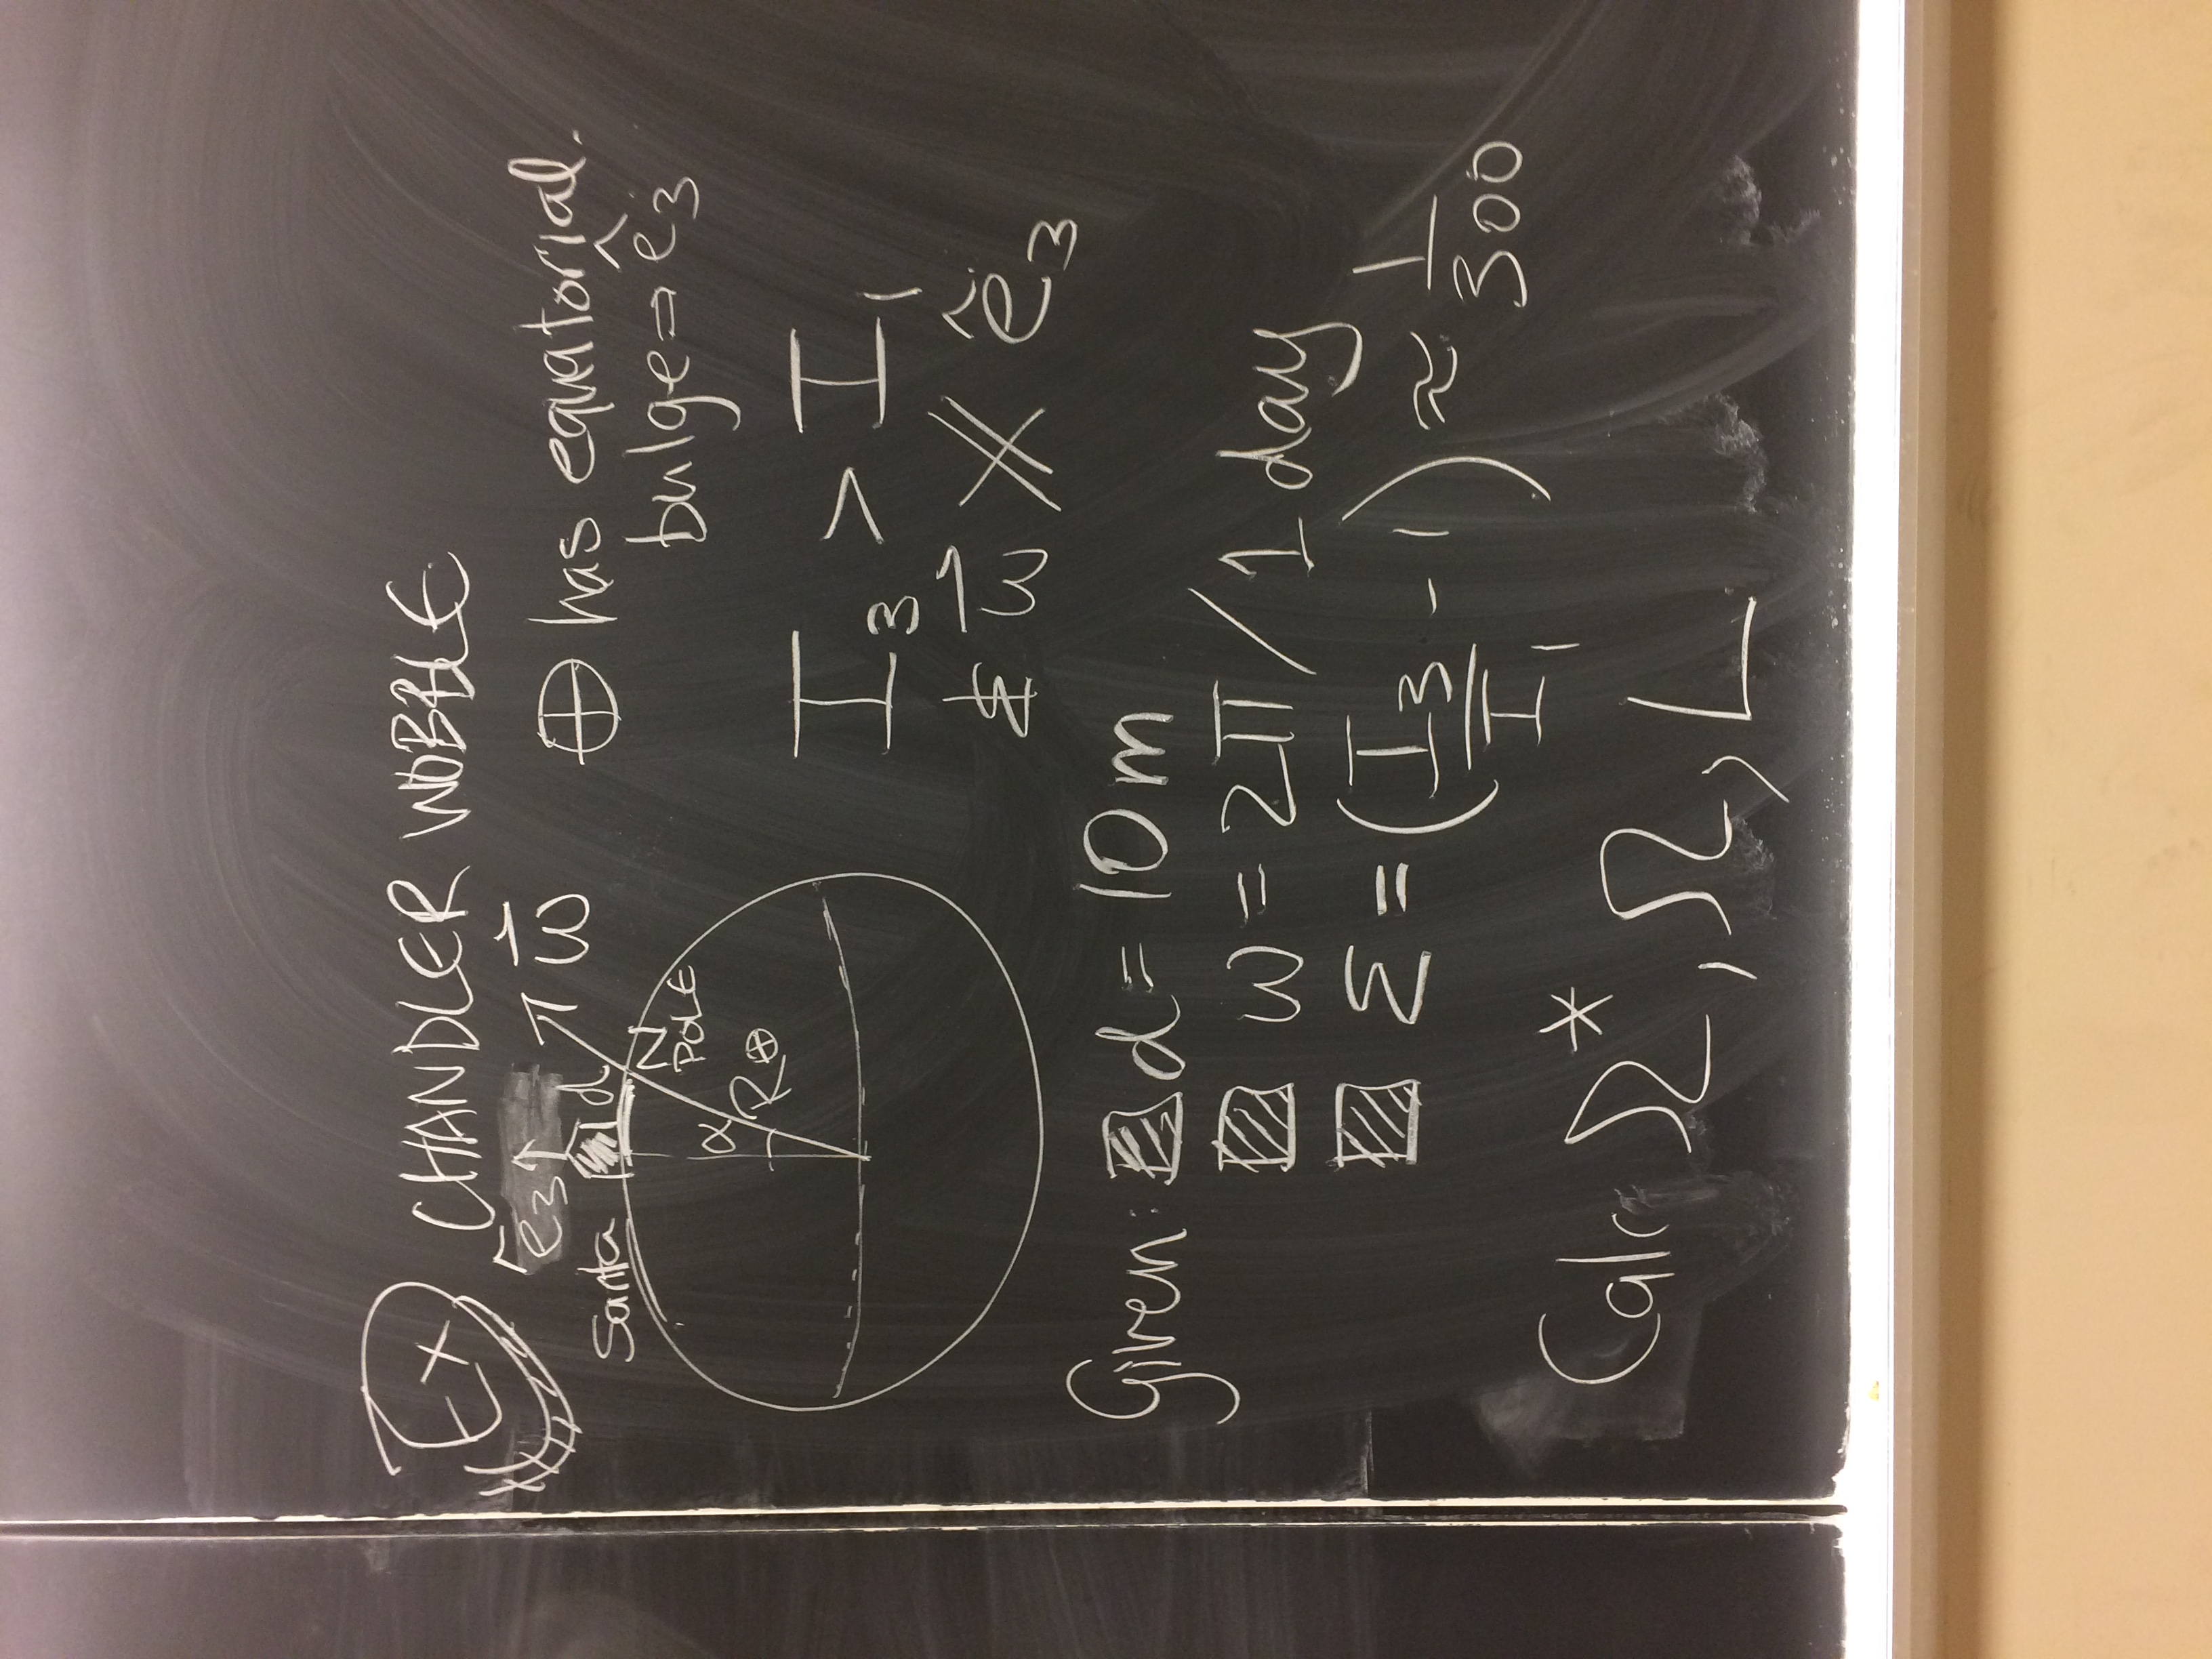 Ex CHANDLER WOBBLE
ê₃ ω⃗
Santa d
N
POLE
α R⊕
⊕ has equatorial
bulge ⇒ ê₃
I₃ > I₁
& ω⃗ ∦ ê₃
Given: d = 10 m
ω = 2π / 1 day
ε = (I₃/I₁ - 1) ≈ 1/300
Calc Ω*, Ω, L